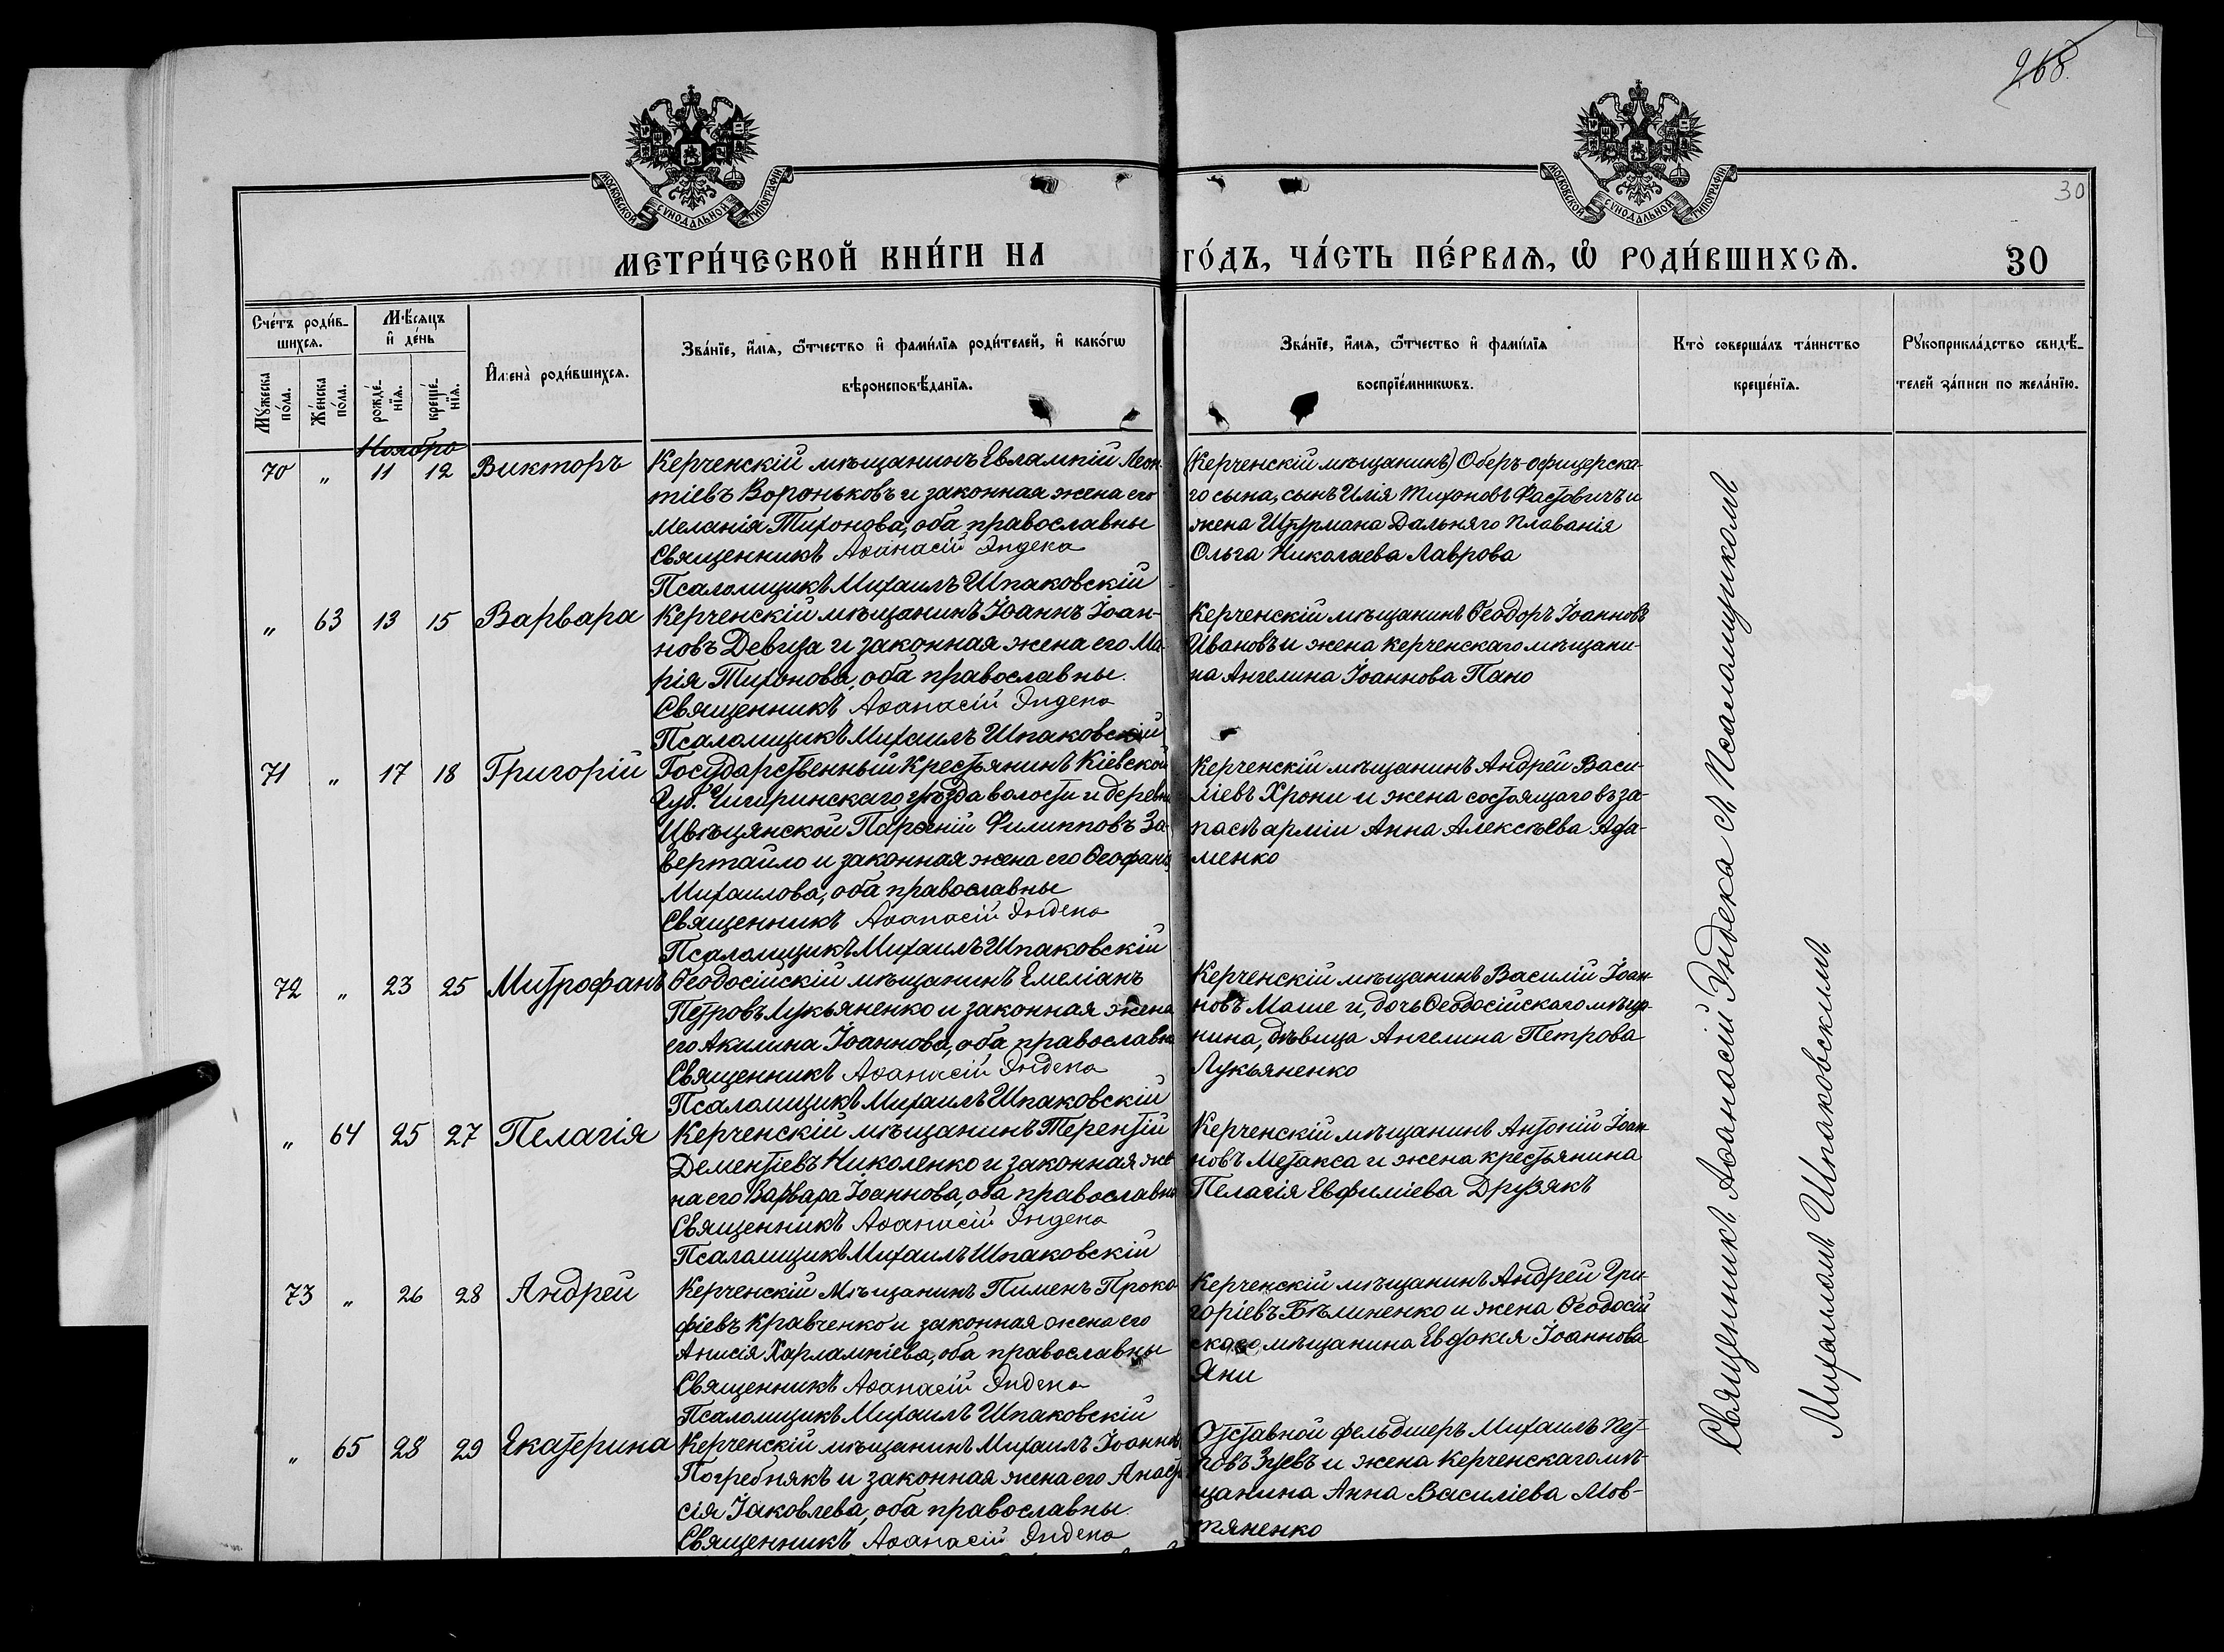 268.
30
МОСКОВСКОЙ СѴНОДАЛЬНОЙ ТИПОГРАФІИ
МОСКОВСКОЙ СѴНОДАЛЬНОЙ ТИПОГРАФІИ
МЕТРИ́ЧЕСКОЙ КНИ́ГИ НА ГО́ДЪ, ЧА́СТЬ ПЕ́РВАѦ, Ѡ҆ РОДИ́ВШИХСѦ. 30
Сче́тъ роди́в-
шихсѧ.
Мꙋ́жеска по́ла.
Же́нска по́ла.
Мѣ́сяцъ и҆ де́нь
рожде́-нїѧ.
креще́-нїѧ.
И҆мена̀ роди́вшихсѧ.
Зва́нїе, и҆́мѧ, ѻ҆́тчество и҆ фами́лїѧ роди́телей, и҆ како́гѡ
вѣроисповѣ́данїѧ.
Зва́нїе, и҆́мѧ, ѻ҆́тчество и҆ фами́лїѧ
воспрїе́мникѡвъ.
Кто̀ соверша́лъ та́инство
креще́нїѧ.
Рꙋкоприкла́дство свидѣ́-
телей за́писи по жела́нїю.
Ноябрь
70 „ 11 12 Викторъ
Керченскій мѣщанинъ Евлампій Леон-
тіевъ Вороньковъ и законная жена его
Меланія Тихонова, оба православны
Священникъ Аѳанасій Эндека
Псаломщикъ Михаилъ Шпаковскій
(Керченскій мѣщанинъ) Оберъ-офицерска-
го сына, сынъ Илія Тихоновъ Фастовичъ и
жена Штурмана Дальняго Плаванія
Ольга Николаева Лаврова
„ 63 13 15 Варвара
Керченскій мѣщанинъ Іоаннъ Іоан-
новъ Девица и законная жена его Ма-
рія Тихонова, оба православны.
Священникъ Аѳанасій Эндека
Псаломщикъ Михаилъ Шпаковскій
Керченскій мѣщанинъ Ѳеодоръ Іоанновъ
Ивановъ и жена керченскаго мѣщани-
на Ангелина Іоаннова Пано
71 „ 17 18 Григорій
Государственный Крестьянинъ Кіевской
Губ. Чигиринскаго уѣзда волости и деревни
Цвѣтцянской Парѳеній Филипповъ За-
вертайло и законная жена его Ѳеофанія
Михаилова, оба православны
Священникъ Аѳанасій Эндека
Псаломщикъ Михаилъ Шпаковскій
Керченскій мѣщанинъ Андрей Васи-
ліевъ Хрони и жена состоящаго въ за-
пасѣ арміи Анна Алексѣева Ада-
менко
72 „ 23 25 Митрофанъ
Ѳеодосійскій мѣщанинъ Емеліанъ
Петровъ Лукьяненко и законная жена
его Акилина Іоаннова, оба православны
Священникъ Аѳанасій Эндека
Псаломщикъ Михаилъ Шпаковскій
Керченскій мѣщанинъ Василій Іоан-
новъ Маше и, дочь Ѳеодосійскаго мѣща-
нина, дѣвица Ангелина Петрова
Лукьяненко
„ 64 25 27 Пелагія
Керченскій мѣщанинъ Терентій
Дементіевъ Николенко и законная же-
на его Варвара Іоаннова, оба православны
Священникъ Аѳанасій Эндека
Псаломщикъ Михаилъ Шпаковскій
Керченскій мѣщанинъ Антоній Іоан-
новъ Метакса и жена крестьянина
Пелагія Евфиміева Друзякъ
73 „ 26 28 Андрей
Керченскій Мѣщанинъ Пименъ Проко-
фіевъ Кравченко и законная жена его
Анисія Харлампіева, оба православны
Священникъ Аѳанасій Эндека
Псаломщикъ Михаилъ Шпаковскій
Керченскій мѣщанинъ Андрей Гри-
горіевъ Бѣлиненко и жена Ѳеодосій
скаго мѣщанина Евдокія Іоаннова
Яни
„ 65 28 29 Екатерина
Керченскій мѣщанинъ Михаилъ Іоанновъ
Погребнякъ и законная жена его Анаста
сія Іаковлева, оба православны.
Священникъ Аѳанасій Эндека
Отставной фельдшеръ Михаилъ Пет-
ровъ Зуевъ и жена Керченскаго мѣ-
щанина Анна Василіева Мов-
тяненко
Священникъ Аѳанасій Эндека съ Псаломщикомъ
Михаиломъ Шпаковскимъ